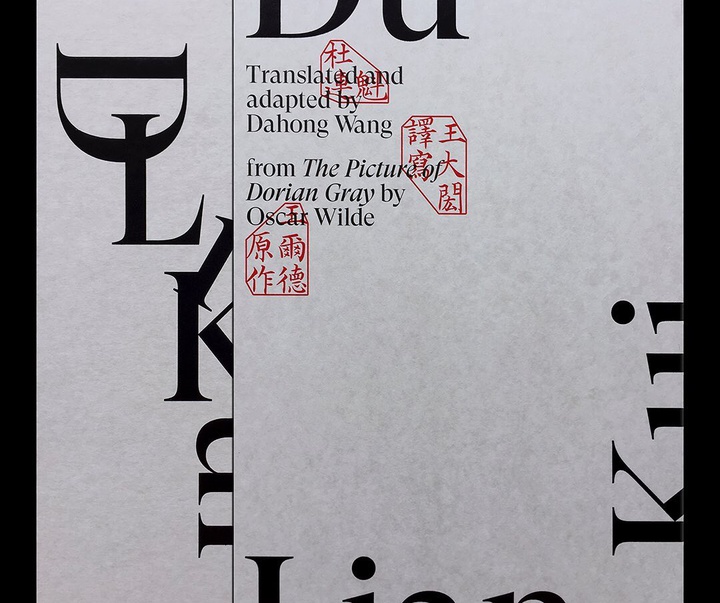 Du
杜連魁
Translated and
adapted by
Dahong Wang
王大閎
譯寫
from The Picture of
Dorian Gray by
Oscar Wilde
王爾德
原作
Kui
Lian
D
L
K